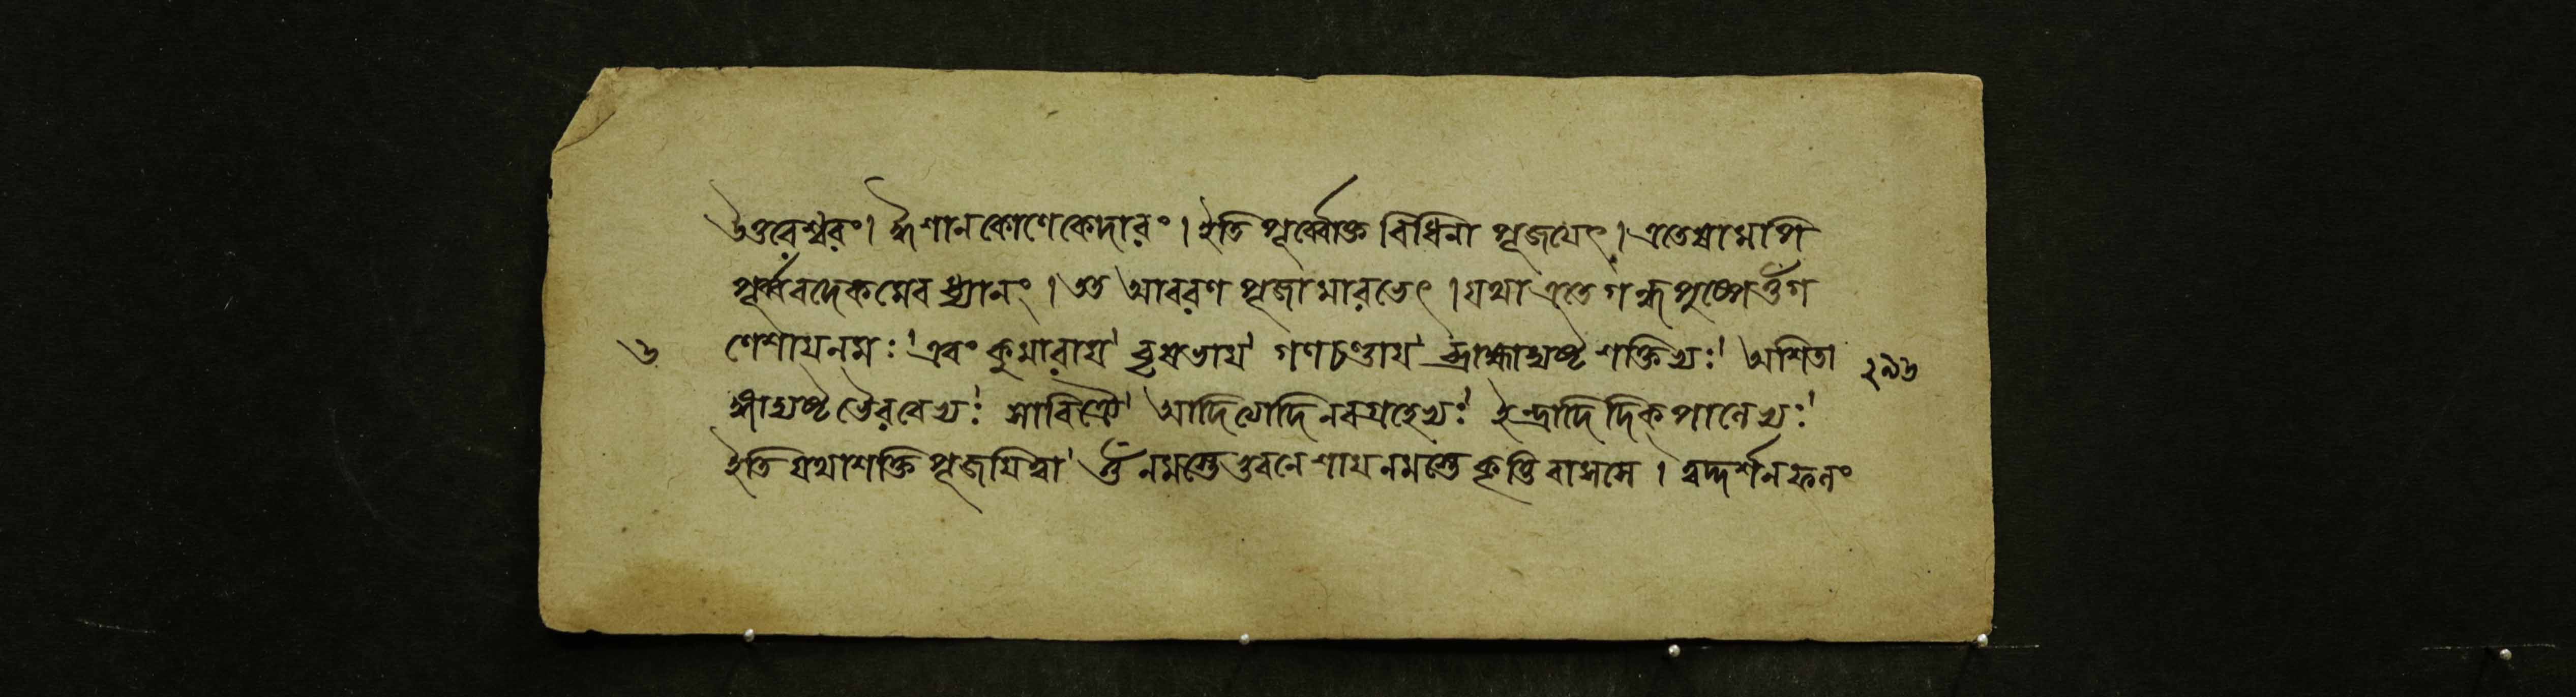 ভুবনেশ্বরং। ঈশানকোণে কেদারং। ইতি পূর্ব্বোক্ত বিধিনা পূজয়েৎ। এতেষামপি
পূর্ব্ববদেকমেব ধ্যানং। তত আবরণ পূজামারভেৎ। যথা এতে গন্ধপুষ্পে ওঁ গ
ণেশায় নমঃ। এবং কুমারায়। বৃষভায়। গণচণ্ডায়। ব্রাহ্ম্যাদ্যষ্ট শক্তিভ্যঃ। অশিতা ২৯৬
ঙ্গাদ্যষ্ট ভৈরবেভ্যঃ। সাবিত্র্যৈ। আদিত্যাদি নবগ্রহেভ্যঃ। ইন্দ্রাদি দিকপালেভ্যঃ।
ইতি যথাশক্তি পূজয়িত্বা। ওঁ নমস্তে ভুবনেশায় নমস্তে কৃত্তিবাসসে। ত্বদ্দর্শন ফলং